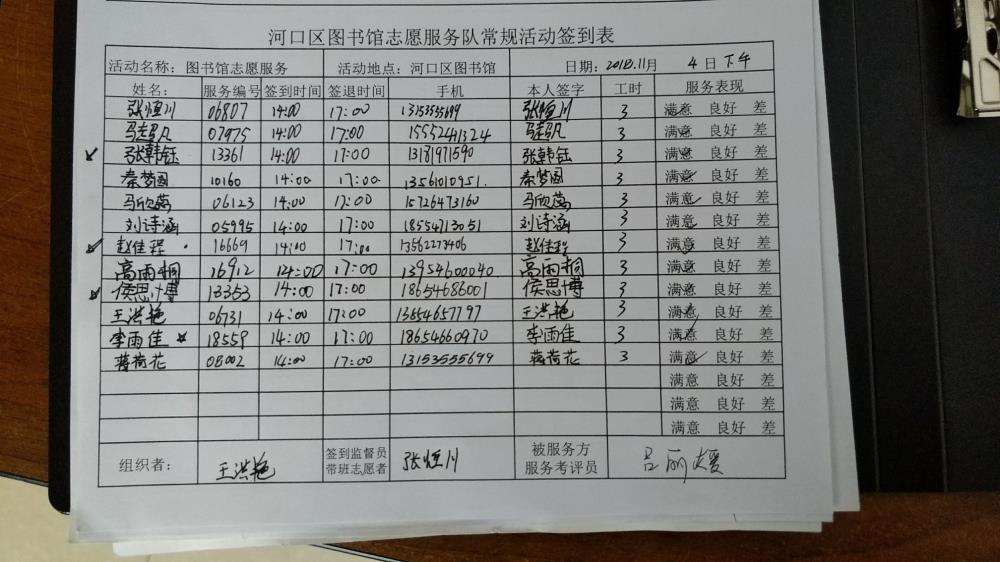 河口区图书馆志愿服务队常规活动签到表
活动名称：图书馆志愿服务 活动地点：河口区图书馆 日期：2018.11月 4日下午
姓名： 服务编号 签到时间 签退时间 手机 本人签字 工时 服务表现
张恒川 06807 14:00 17:00 13153535699 张恒川 3 满意 良好 差
07975 14:00 17:00 15552441324 3 满意 良好 差
张韩钰 13361 14:00 17:00 13181971590 张韩钰 3 满意 良好 差
秦梦圆 10160 14:00 17:00 13561010951. 秦梦圆 3 满意 良好 差
马欣蕊 06123 14:00 17:00 15726473160 马欣蕊 3 满意 良好 差
刘诗涵 05995 14:00 17:00 18554713051 刘诗涵 3 满意 良好 差
赵佳程 16669 14:00 17:00 13562273406 赵佳程 3 满意 良好 差
高雨桐 16912 14:00 17:00 13954600040 高雨桐 3 满意 良好 差
侯思博 13353 14:00 17:00 18654686001 侯思博 3 满意 良好 差
王洪艳 06731 14:00 17:00 13854657797 王洪艳 3 满意 良好 差
李雨佳 18559 14:00 17:00 18654660970 李雨佳 3 满意 良好 差
蒋荷花 08002 14:00 17:00 13153555699 蒋荷花 3 满意 良好 差
满意 良好 差
满意 良好 差
满意 良好 差
组织者： 王洪艳 签到监督员 张恒川 被服务方 吕丽媛
带班志愿者 服务考评员